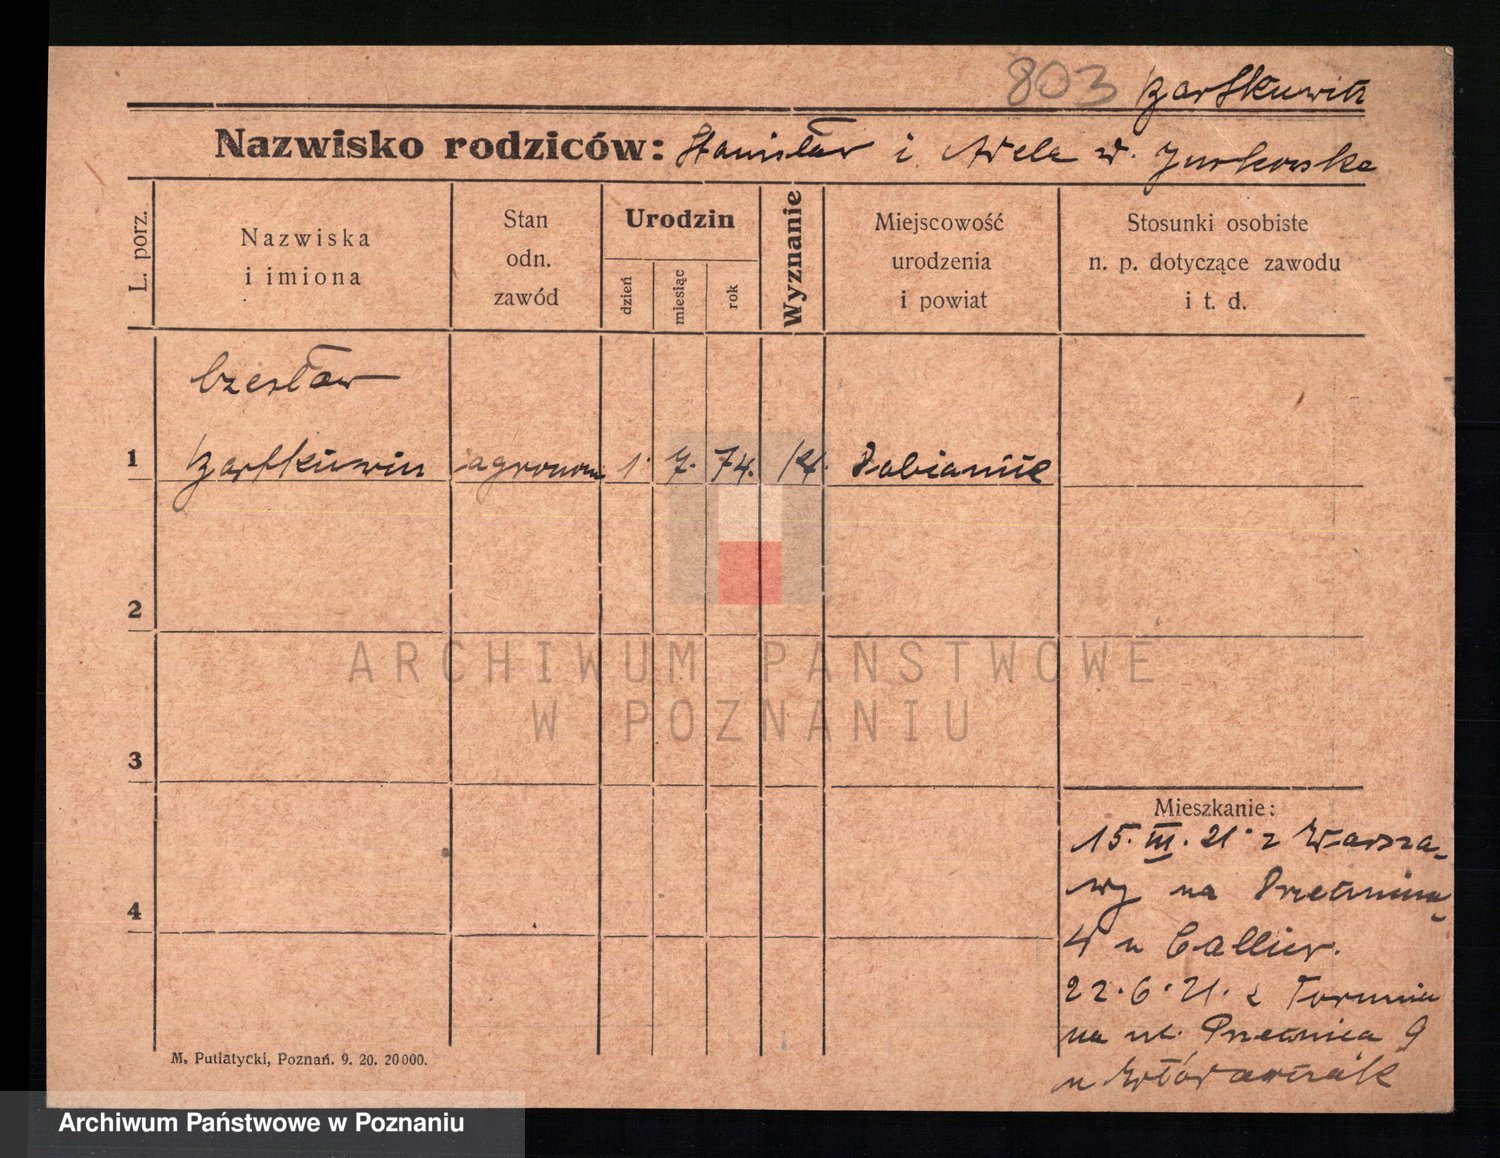 803
Nazwisko rodziców: Stanisław i Adela
L. porz.
Nazwiska
i imiona
Stan
odn.
zawód
Urodzin
dzień
miesiąc
rok
Wyznanie
Miejscowość
urodzenia
i powiat
Stosunki osobiste
n. p. dotyczące zawodu
i t. d.
Czesław
1 agronom 1. 7. 74. Pabianice
2
3
4
Mieszkanie:
15. III. 21. z Warsza-
wy na
4 u Callier.
22. 6. 21. z Torunia
na ul. 9
u
M. Putiatycki, Poznań. 9. 20. 20000.
ARCHIWUM PAŃSTWOWE
W POZNANIU
Archiwum Państwowe w Poznaniu